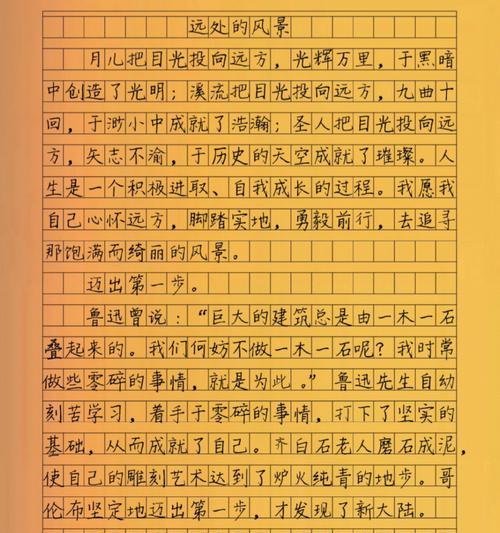 远处的风景
月儿把目光投向远方，光辉万里，于黑暗
中创造了光明；溪流把目光投向远方，九曲十
回，于渺小中成就了浩瀚；圣人把目光投向远
方，矢志不渝，于历史的天空成就了璀璨。人
生是一个积极进取、自我成长的过程。我愿我
自己心怀远方，脚踏实地，勇毅前行，去追寻
那饱满而绮丽的风景。
迈出第一步。
鲁迅曾说：“巨大的建筑总是由一木一石
叠起来的。我们何妨不做一木一石呢？我时常
做些零碎的事情，就是为此。”鲁迅先生自幼
刻苦学习，着手于零碎的事情，打下了坚实的
基础，从而成就了自己。齐白石老人磨石成泥，
使自己的雕刻艺术达到了炉火纯青的地步。哥
伦布坚定地迈出第一步，才发现了新大陆。